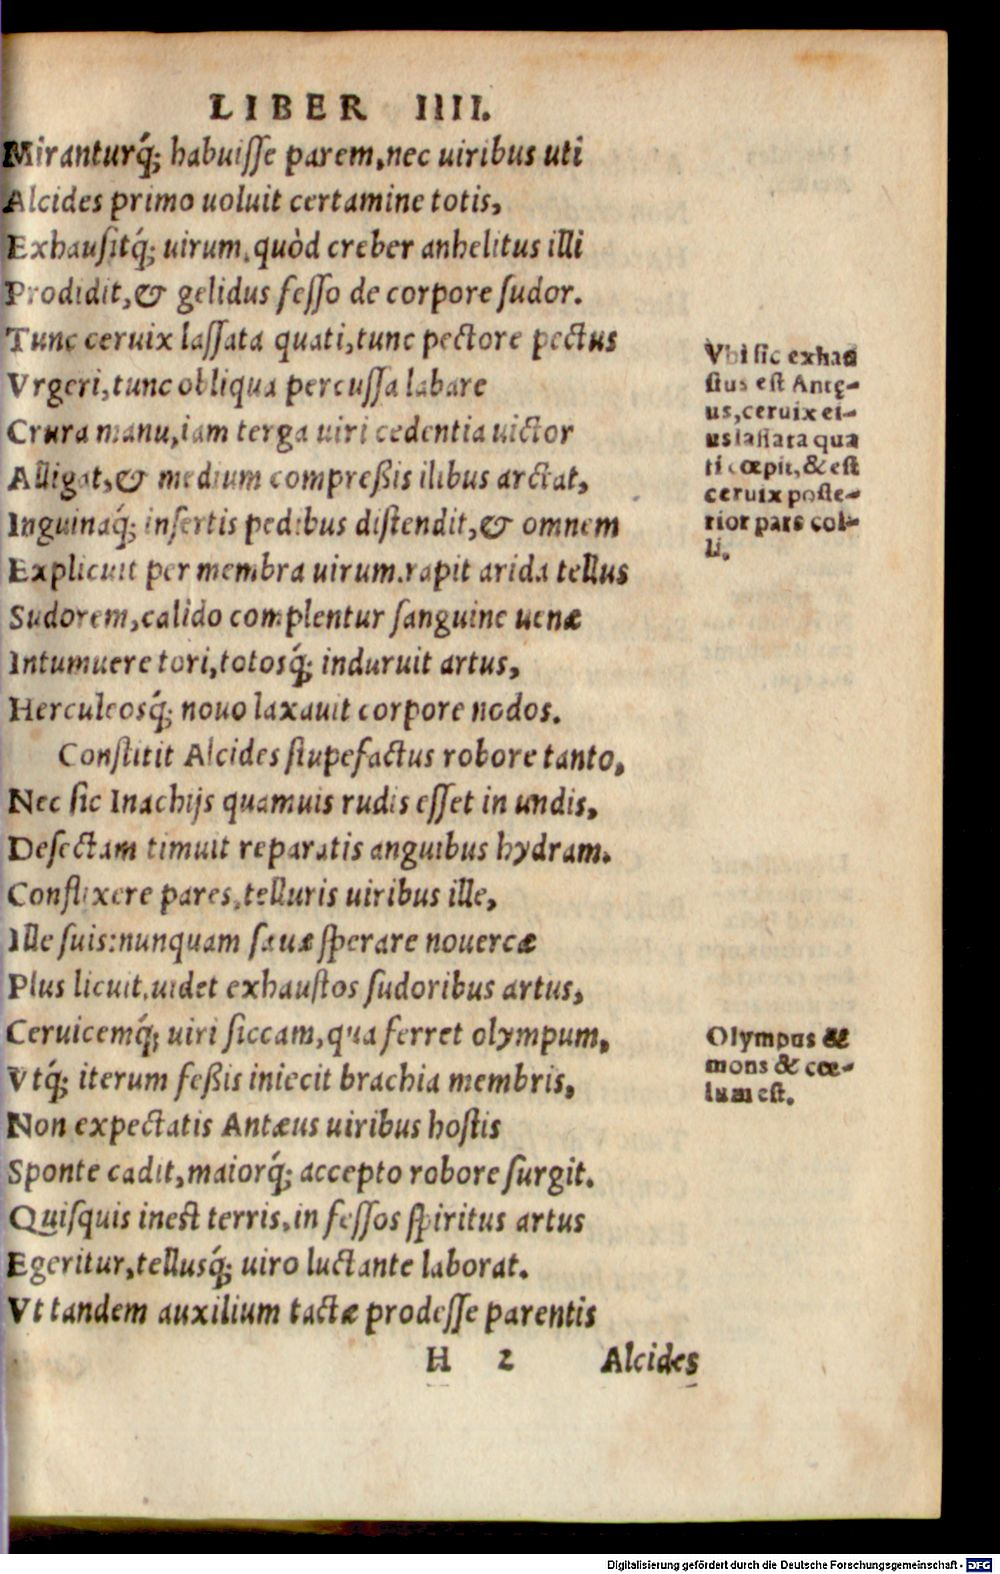 LIBER IIII.
Miranturq́; habuisse parem, nec uiribus uti
Alcides primo uoluit certamine totis,
Exhausitq́; uirum, quòd creber anhelitus illi
Prodidit, & gelidus fesso de corpore sudor.
Tunc ceruix lassata quati, tunc pectore pectus
Vrgeri, tunc obliqua percussa labare
Crura manu, iam terga uiri cedentia uictor
Alligat, & medium compreßis ilibus arctat,
Inguinaq́; insertis pedibus distendit, & omnem
Explicuit per membra uirum. rapit arida tellus
Sudorem, calido complentur sanguine uenæ
Intumuere tori, totosq́; induruit artus,
Herculeosq́; nouo laxauit corpore nodos.
Constitit Alcides stupefactus robore tanto,
Nec sic Inachijs quamuis rudis esset in undis,
Desectam timuit reparatis anguibus hydram.
Conflixere pares, telluris uiribus ille,
Ille suis: nunquam sæuæ sperare nouercæ
Plus licuit. uidet exhaustos sudoribus artus,
Ceruicemq́; uiri siccam, qua ferret olympum,
Vtq́; iterum feßis iniecit brachia membris,
Non expectatis Antæus uiribus hostis
Sponte cadit, maiorq́; accepto robore surgit.
Quisquis inest terris, in fessos spiritus artus
Egeritur, tellusq́; uiro luctante laborat.
Vt tandem auxilium tactæ prodesse parentis
H 2 Alcides
Vbi sic exhau
stus est Antę-
us, ceruix ei-
us lassata qua
ti cœpit, & est
ceruix poste-
rior pars col-
li.
Olympus &
mons & cœ-
lum est.
Digitalisierung gefördert durch die Deutsche Forschungsgemeinschaft - DFG